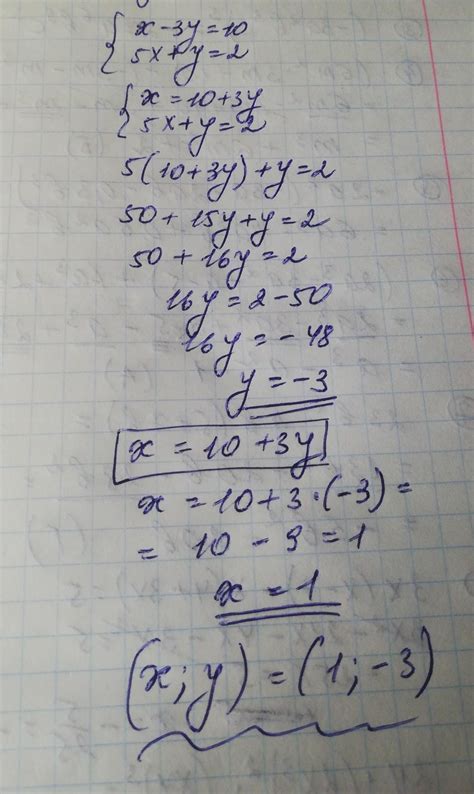 { x - 3y = 10
5x + y = 2
{ x = 10 + 3y
5x + y = 2
5(10 + 3y) + y = 2
50 + 15y + y = 2
50 + 16y = 2
16y = 2 - 50
16y = - 48
y = -3
x = 10 + 3y
x = 10 + 3 · (-3) =
= 10 - 9 = 1
x = 1
(x; y) = (1; -3)